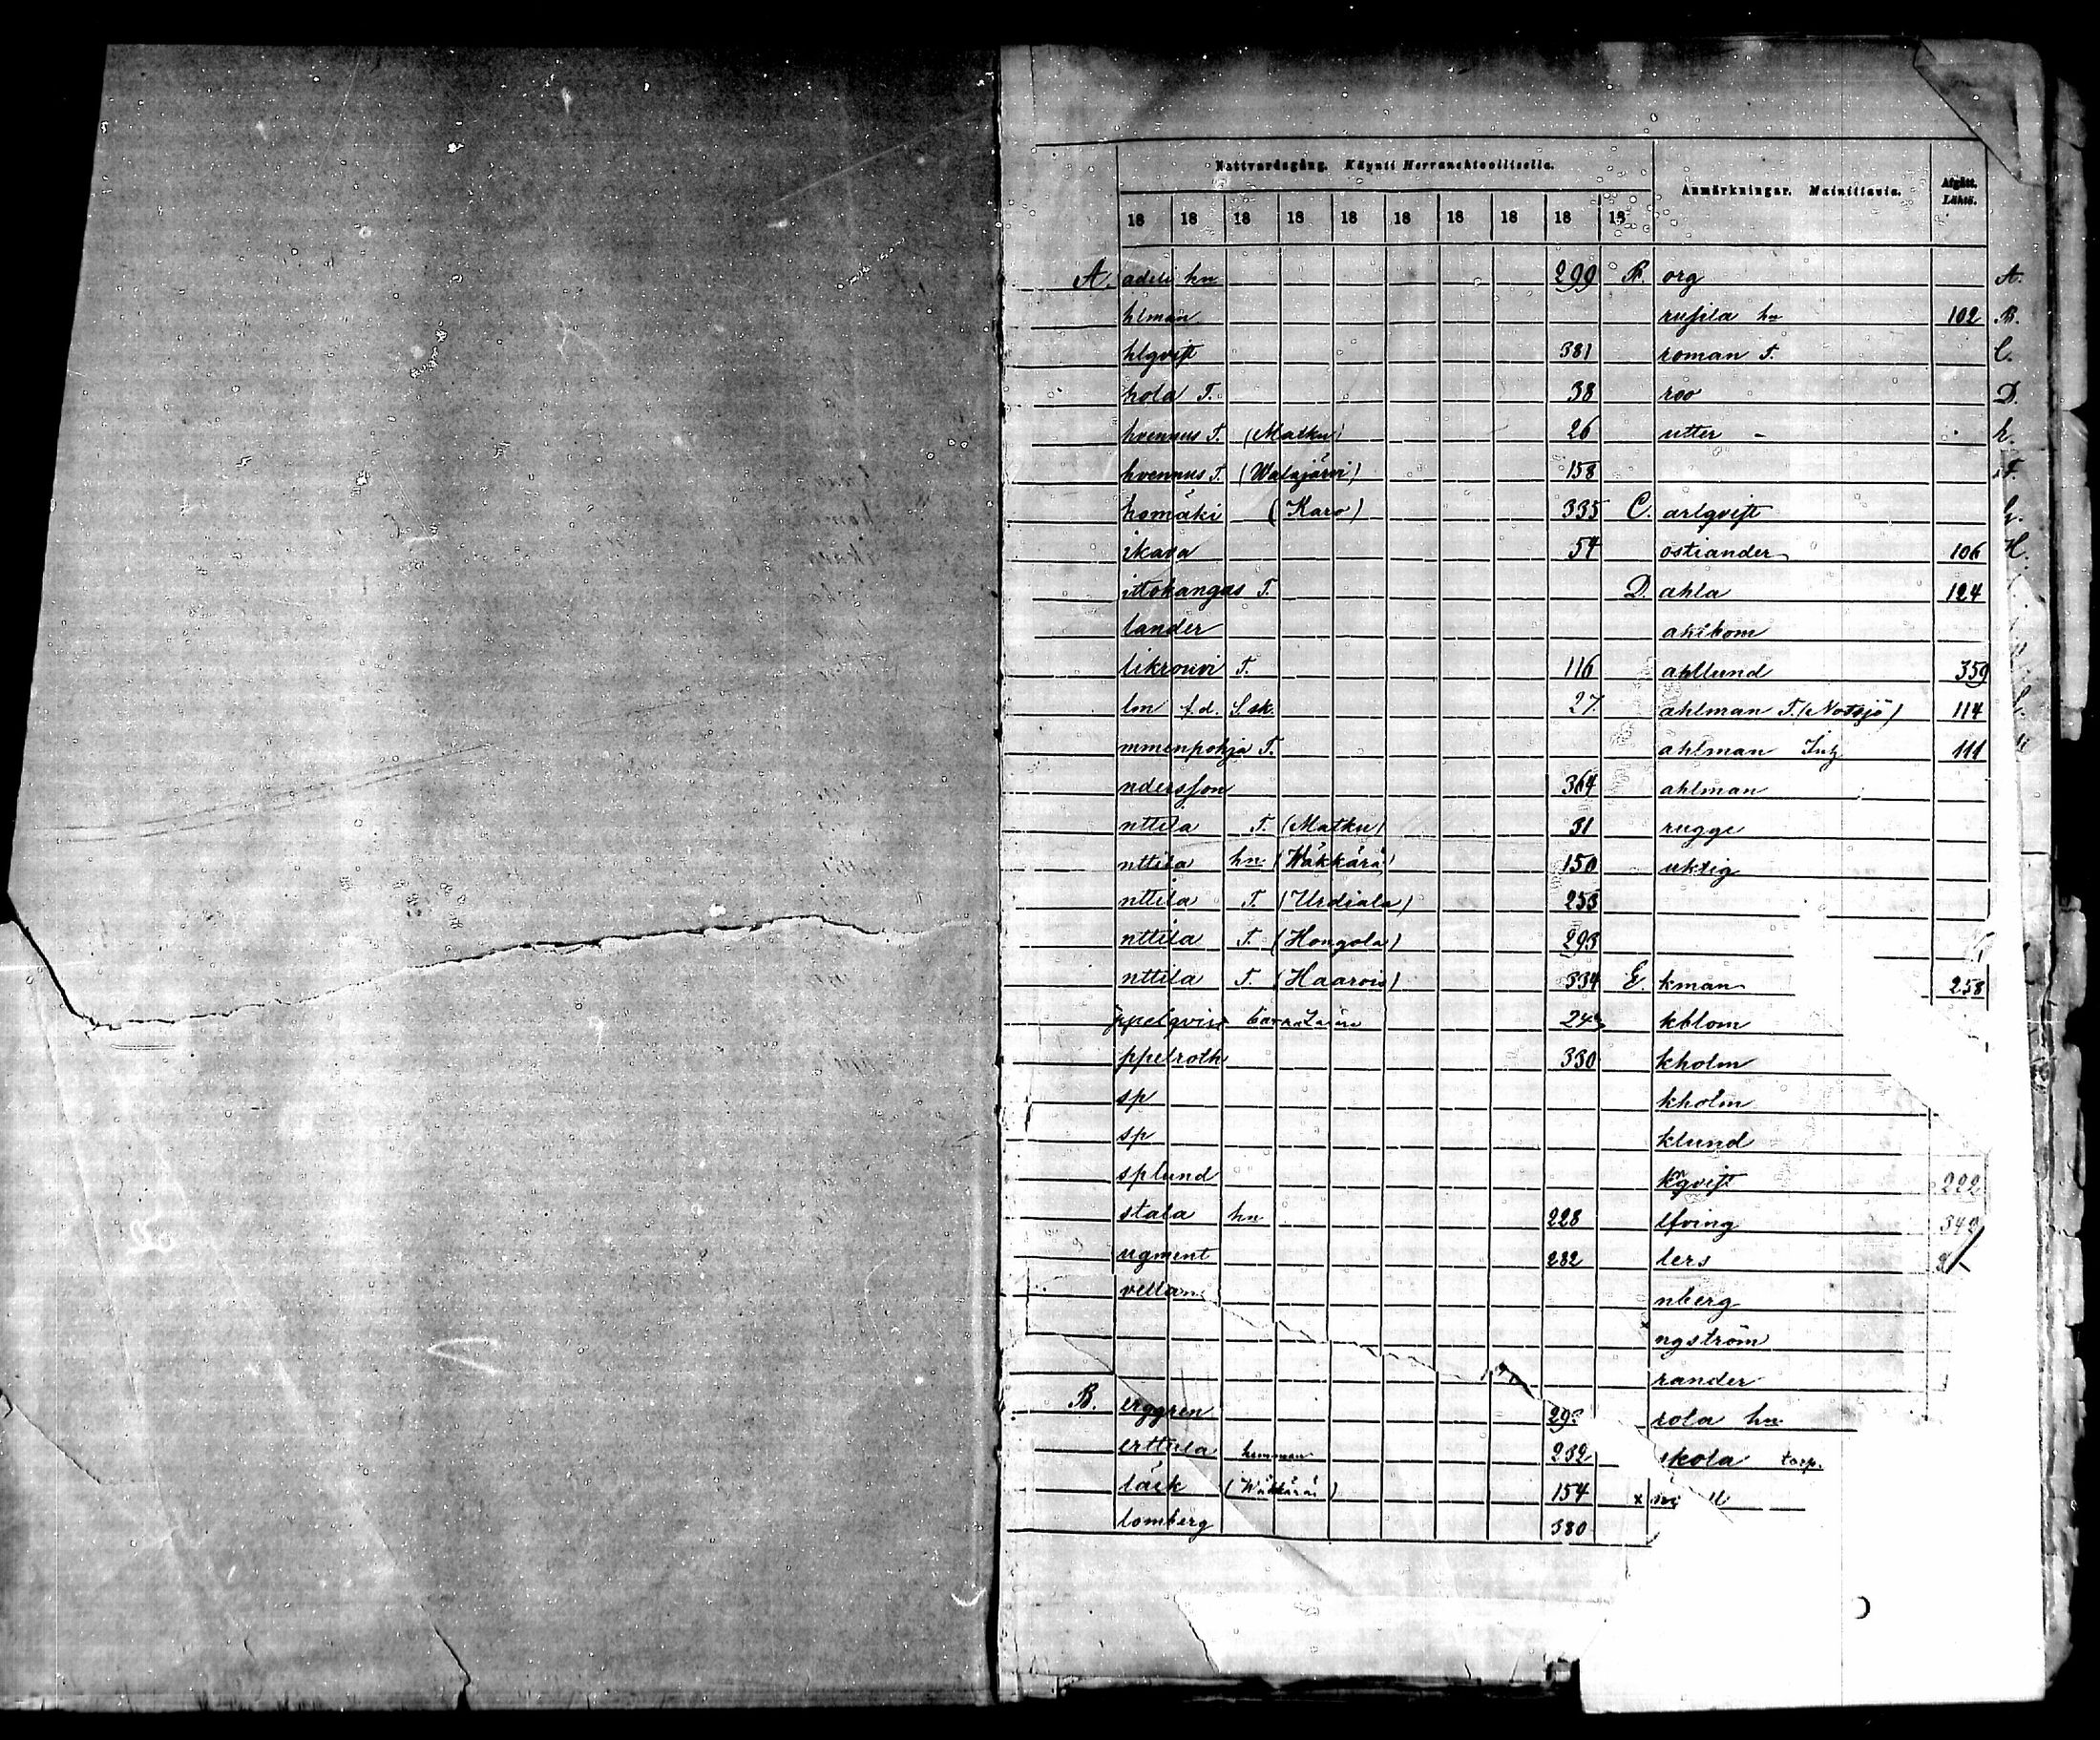 Nattvardsgång. Käynti Herranehtoollisella. Anmärkningar. Mainittavia. Afgått. Lähtö.
18 18 18 18 18 18 18 18 18 18
A. adeli hn 299 B. org A.
hlman rusila hn 102 B.
hlqvist 381 roman T. C.
hola T. 38 roo D.
hvennus T. (Matku) 26 utter
hvennus T. (Walajärvi) 158 F.
homäki (Karo) 335 C. arlqvist
ikava 54 ostiander 106 H.
ittokangas T. D. ahla 124
lander
likrouvi T. 116 ahllund 359
lm f.d. 27 ahlman T. (Notsjö) 114
mmenpohja T. ahlman Inh 111
ndersson 364 ahlman
nttila T. (Matku) 31 rugge
nttila hn (Wäkkärä) 150 uktig
nttila T. (Urdiala) 253
nttila T. (Hongola) 293
nttila T. (Haarois) 334 E. kman 258
ppelqvist kblom
ppelroth 330 kholm
sp kholm
sp klund
splund kqvist 222
stala hn 228 lfving
ugment 282 lers
vellan nberg
ngström
rander
B. erggren rola hn
erttula hemman 232 skola torp.
läck (Wäkkärä) 154 x
lomberg 380